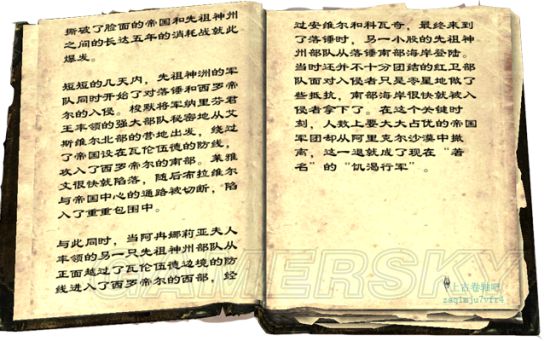 撕破了脸面的帝国和先祖神州
之间的长达五年的消耗战就此
爆发。
短短的几天内，先祖神洲的军
队同时开始了对落锤和西罗帝
尔的入侵。梭默将军纳里芬君
王率领的强大部队秘密地从艾
斯维尔北部的营地出发，绕过
了帝国设在瓦伦伍德的防线，
攻入了西罗帝尔的南部。莱雅
文很快就陷落，随后布拉维尔
与帝国中心的通路被切断，陷
入了重重包围中。
与此同时，当阿冉娜莉亚夫人
率领的另一只先祖神州部队从
正面越过了瓦伦伍德边境的防
线进入了西罗帝尔的西部，经
过安维尔和科瓦奇，最终来到
了落锤时，另一小股的先祖神
州部队从落锤南部海岸登陆。
当时还并不十分团结的红卫部
队面对入侵者只是零星地做了
些抵抗，南部海岸很快就被入
侵者拿下了。在这个关键时
刻，人数上要大大占优的帝国
军团却从阿里克尔沙漠中撤
离，这一退就成了现在“著
名”的“饥渴行军”。
GAMERSKY
上古卷轴吧
zaqimju7vfr4